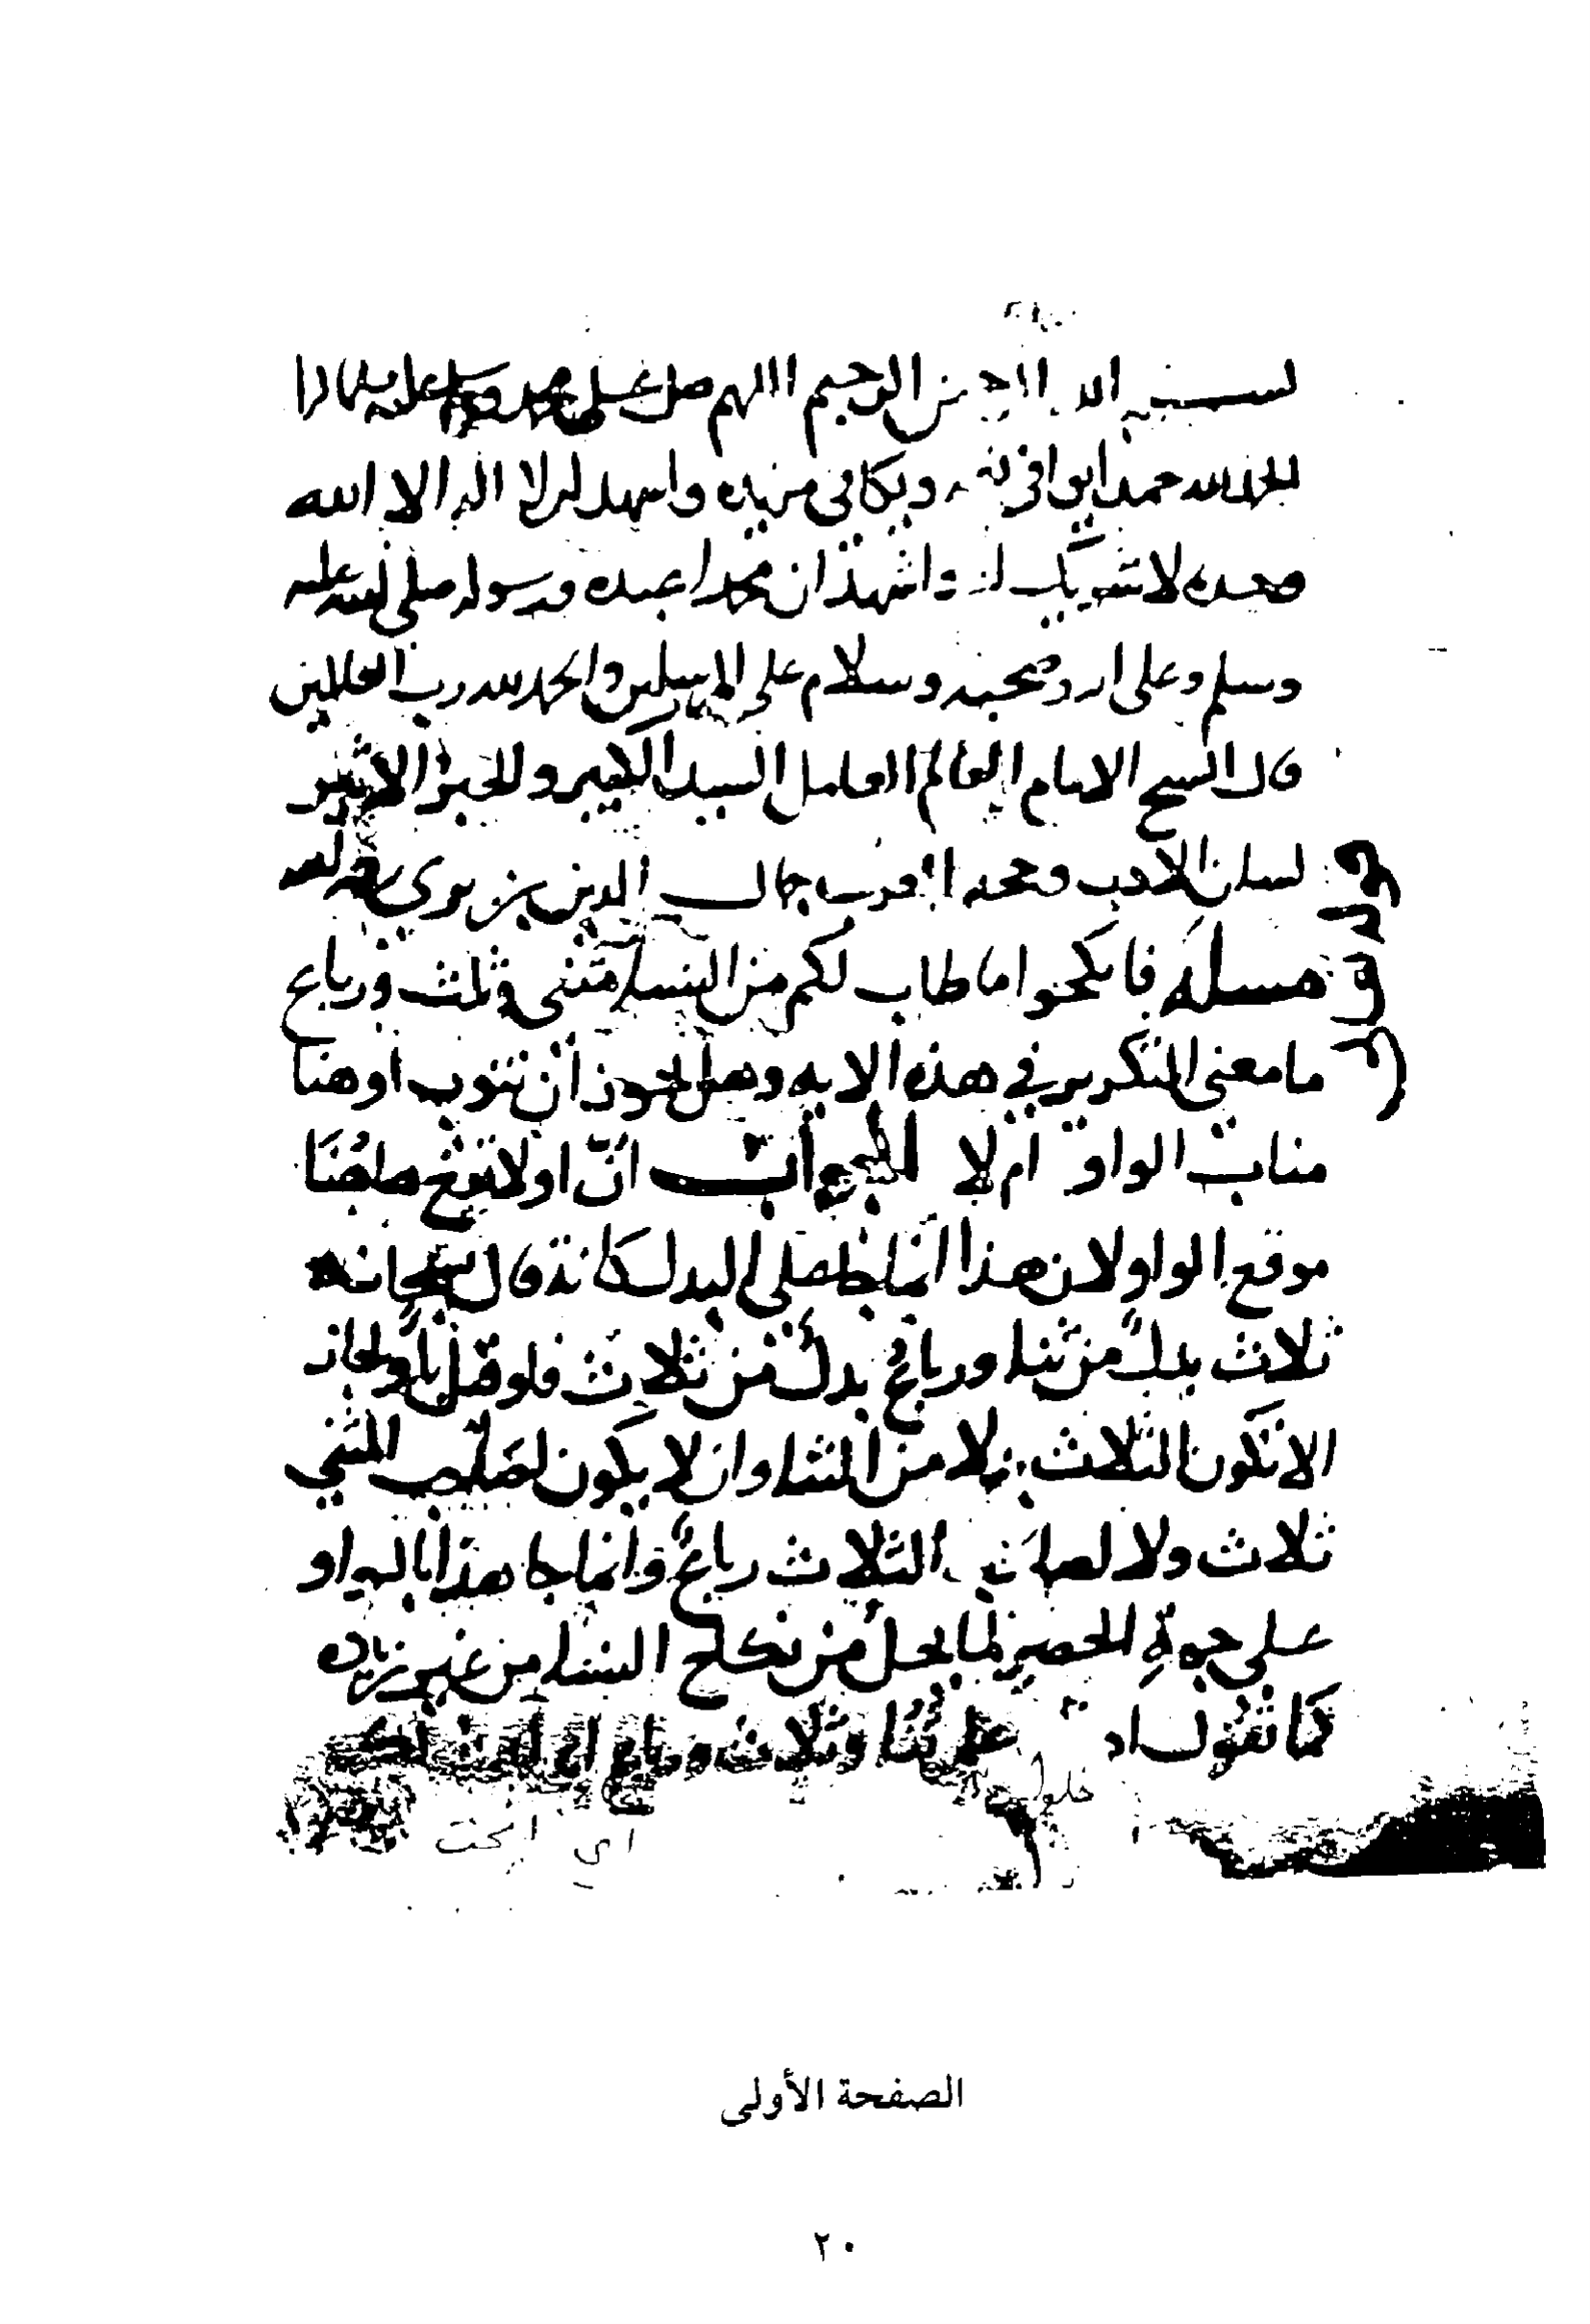 بسم الله الرحمن الرحيم اللهم صل على محمد وسلم
الحمد لله حمدا يوافي نعمه ويكافي مزيده واشهد ان لا اله الا الله
وحده لا شريك له واشهد ان محمدا عبده ورسوله صلى الله عليه
وسلم وعلى اله وصحبه وسلام على المرسلين والحمد لله رب العالمين
قال الشيخ الامام العالم العامل السيد الكبير والحبر الاثير
لسان الادب وحجه العرب جمال الدين بن بري رحمه الله
مسلة فانكحوا ما طاب لكم من النسا مثنى وثلث ورباع
ما معنى التكرير في هذه الايه وهل يجوز ان تنوب او هنا
مناب الواو ام لا الجواب ان او لا تقع هاهنا
موقع الواو لان هذا انما جا على البدل كانه قال سبحانه
ثلاث بدلا من ثنا ورباع بدلا من ثلاث فلو قيل باو لجاز
الا تكون الثلاث بدلا من المثنا وان لا يكون لصاحب المثنى
ثلاث ولا لصاحب الثلاث رباع وانما جا هذا بالواو
على جهة الحصر لما يحل من نكاح النسا من غير زياده
كما تقول ثنا وثلاث ورباع اي
اي انكحت
الصفحة الأولى
٢٠